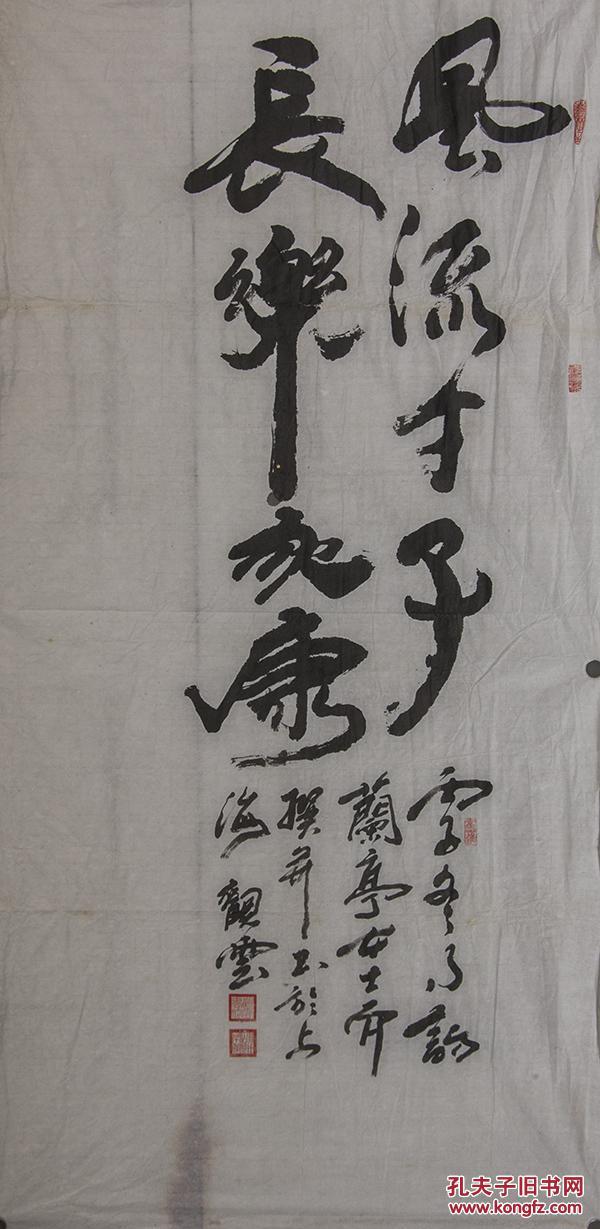 風流才子
長樂永康
冬月
蘭亭女士
撰並書於上
海 觀雲
孔夫子旧书网
www.kongfz.com